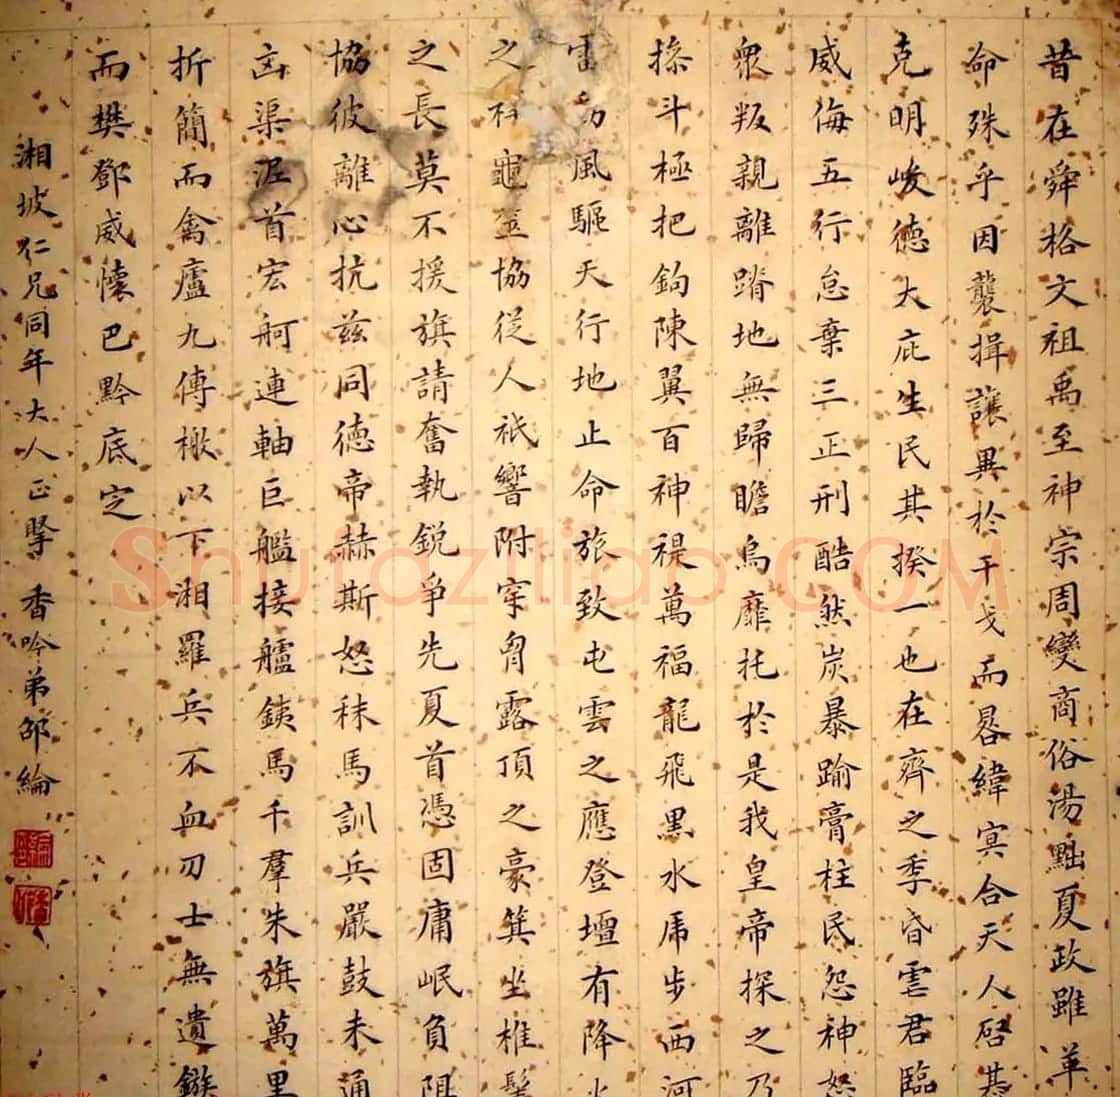 昔在舜格文祖禹至神宗周變商俗湯黜夏政雖革
命殊乎因襲揖讓異於干戈而晷緯冥合天人啓
克明峻德大庇生民其揆一也在齊之季昏虐君臨
威侮五行怠棄三正刑酷然炭暴踰膏柱民怨神怒
衆叛親離蹐地無歸瞻烏靡託於是我皇帝探之乃
操斗極把鉤陳翼百神禔萬福龍飛黑水虎步西河
雷動風驅天行地止命旅致屯雲之應登壇有降火
之祥龜筮協從人祇響附穿胷露頂之豪箕坐椎髻
之長莫不援旗請奮執銳爭先夏首憑固庸岷負阻
協彼離心抗茲同德帝赫斯怒秣馬訓兵嚴鼓未通
凶渠泥首宏舸連軸巨艦接艫鐵馬千羣朱旗萬里
折簡而禽廬九傳檄以下湘羅兵不血刃士無遺鏃
而樊鄧威懷巴黔底定
湘坡仁兄同年大人正擘 香吟弟邵綸
Shufaziliao.COM